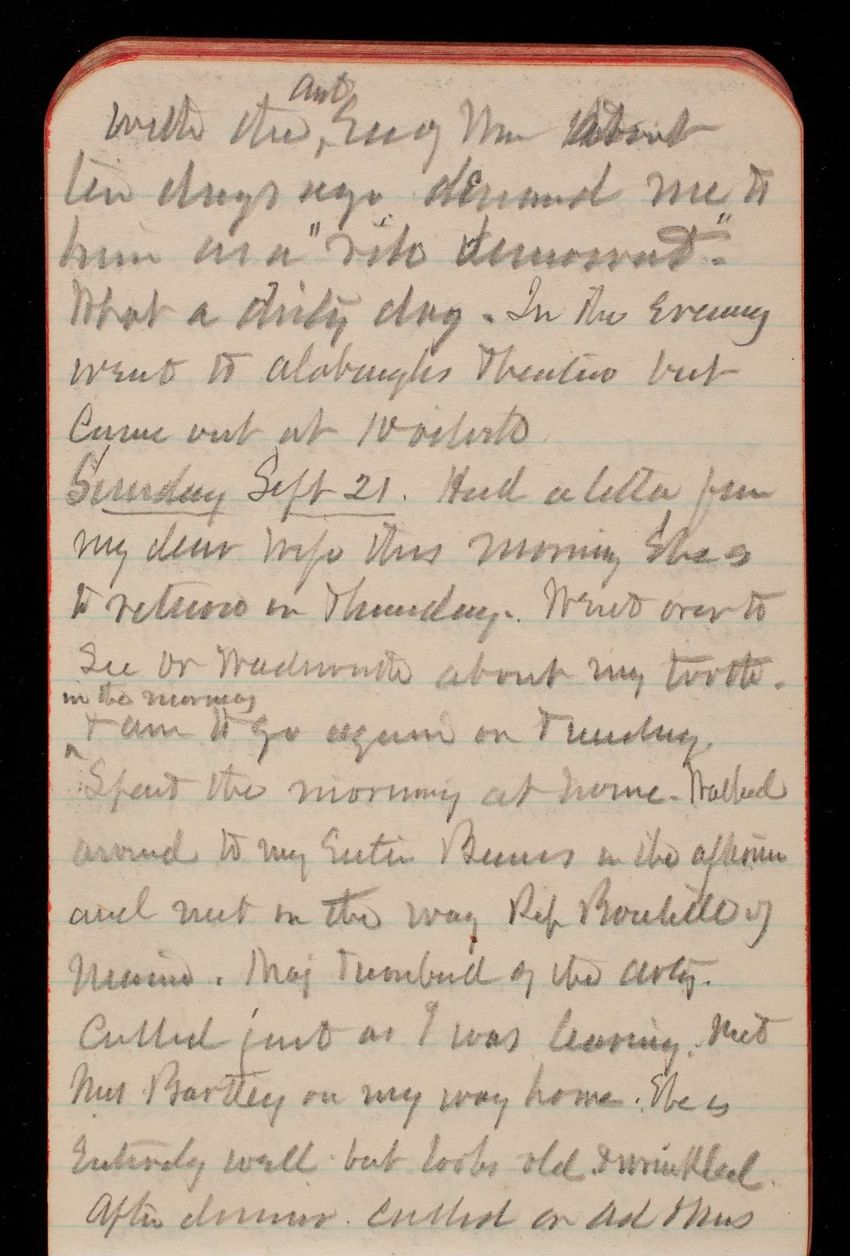 with the, Ass't Secy War about
ten days ago demand me to
him as a "
What a dirty dog. In the evening
went to Albaughs Theatre but
Came out at 10 oclock
Sunday Sept 21. Had a letter from
my dear wife this morning She is
to return on Thursday. Went over to
See Dr Wadsworth about my tooth.
in the morning
& am to go again on Tuesday.
Spent the morning at home. Walked
around to my Sister in the afternoon
and met on the way Rep Boutelle of
Maine. Maj Turnbull of the arty.
Called just as I was leaving. Met
Mrs Bartley on my way home. She is
Entirely well but looks old & wrinkled.
After dinner called on